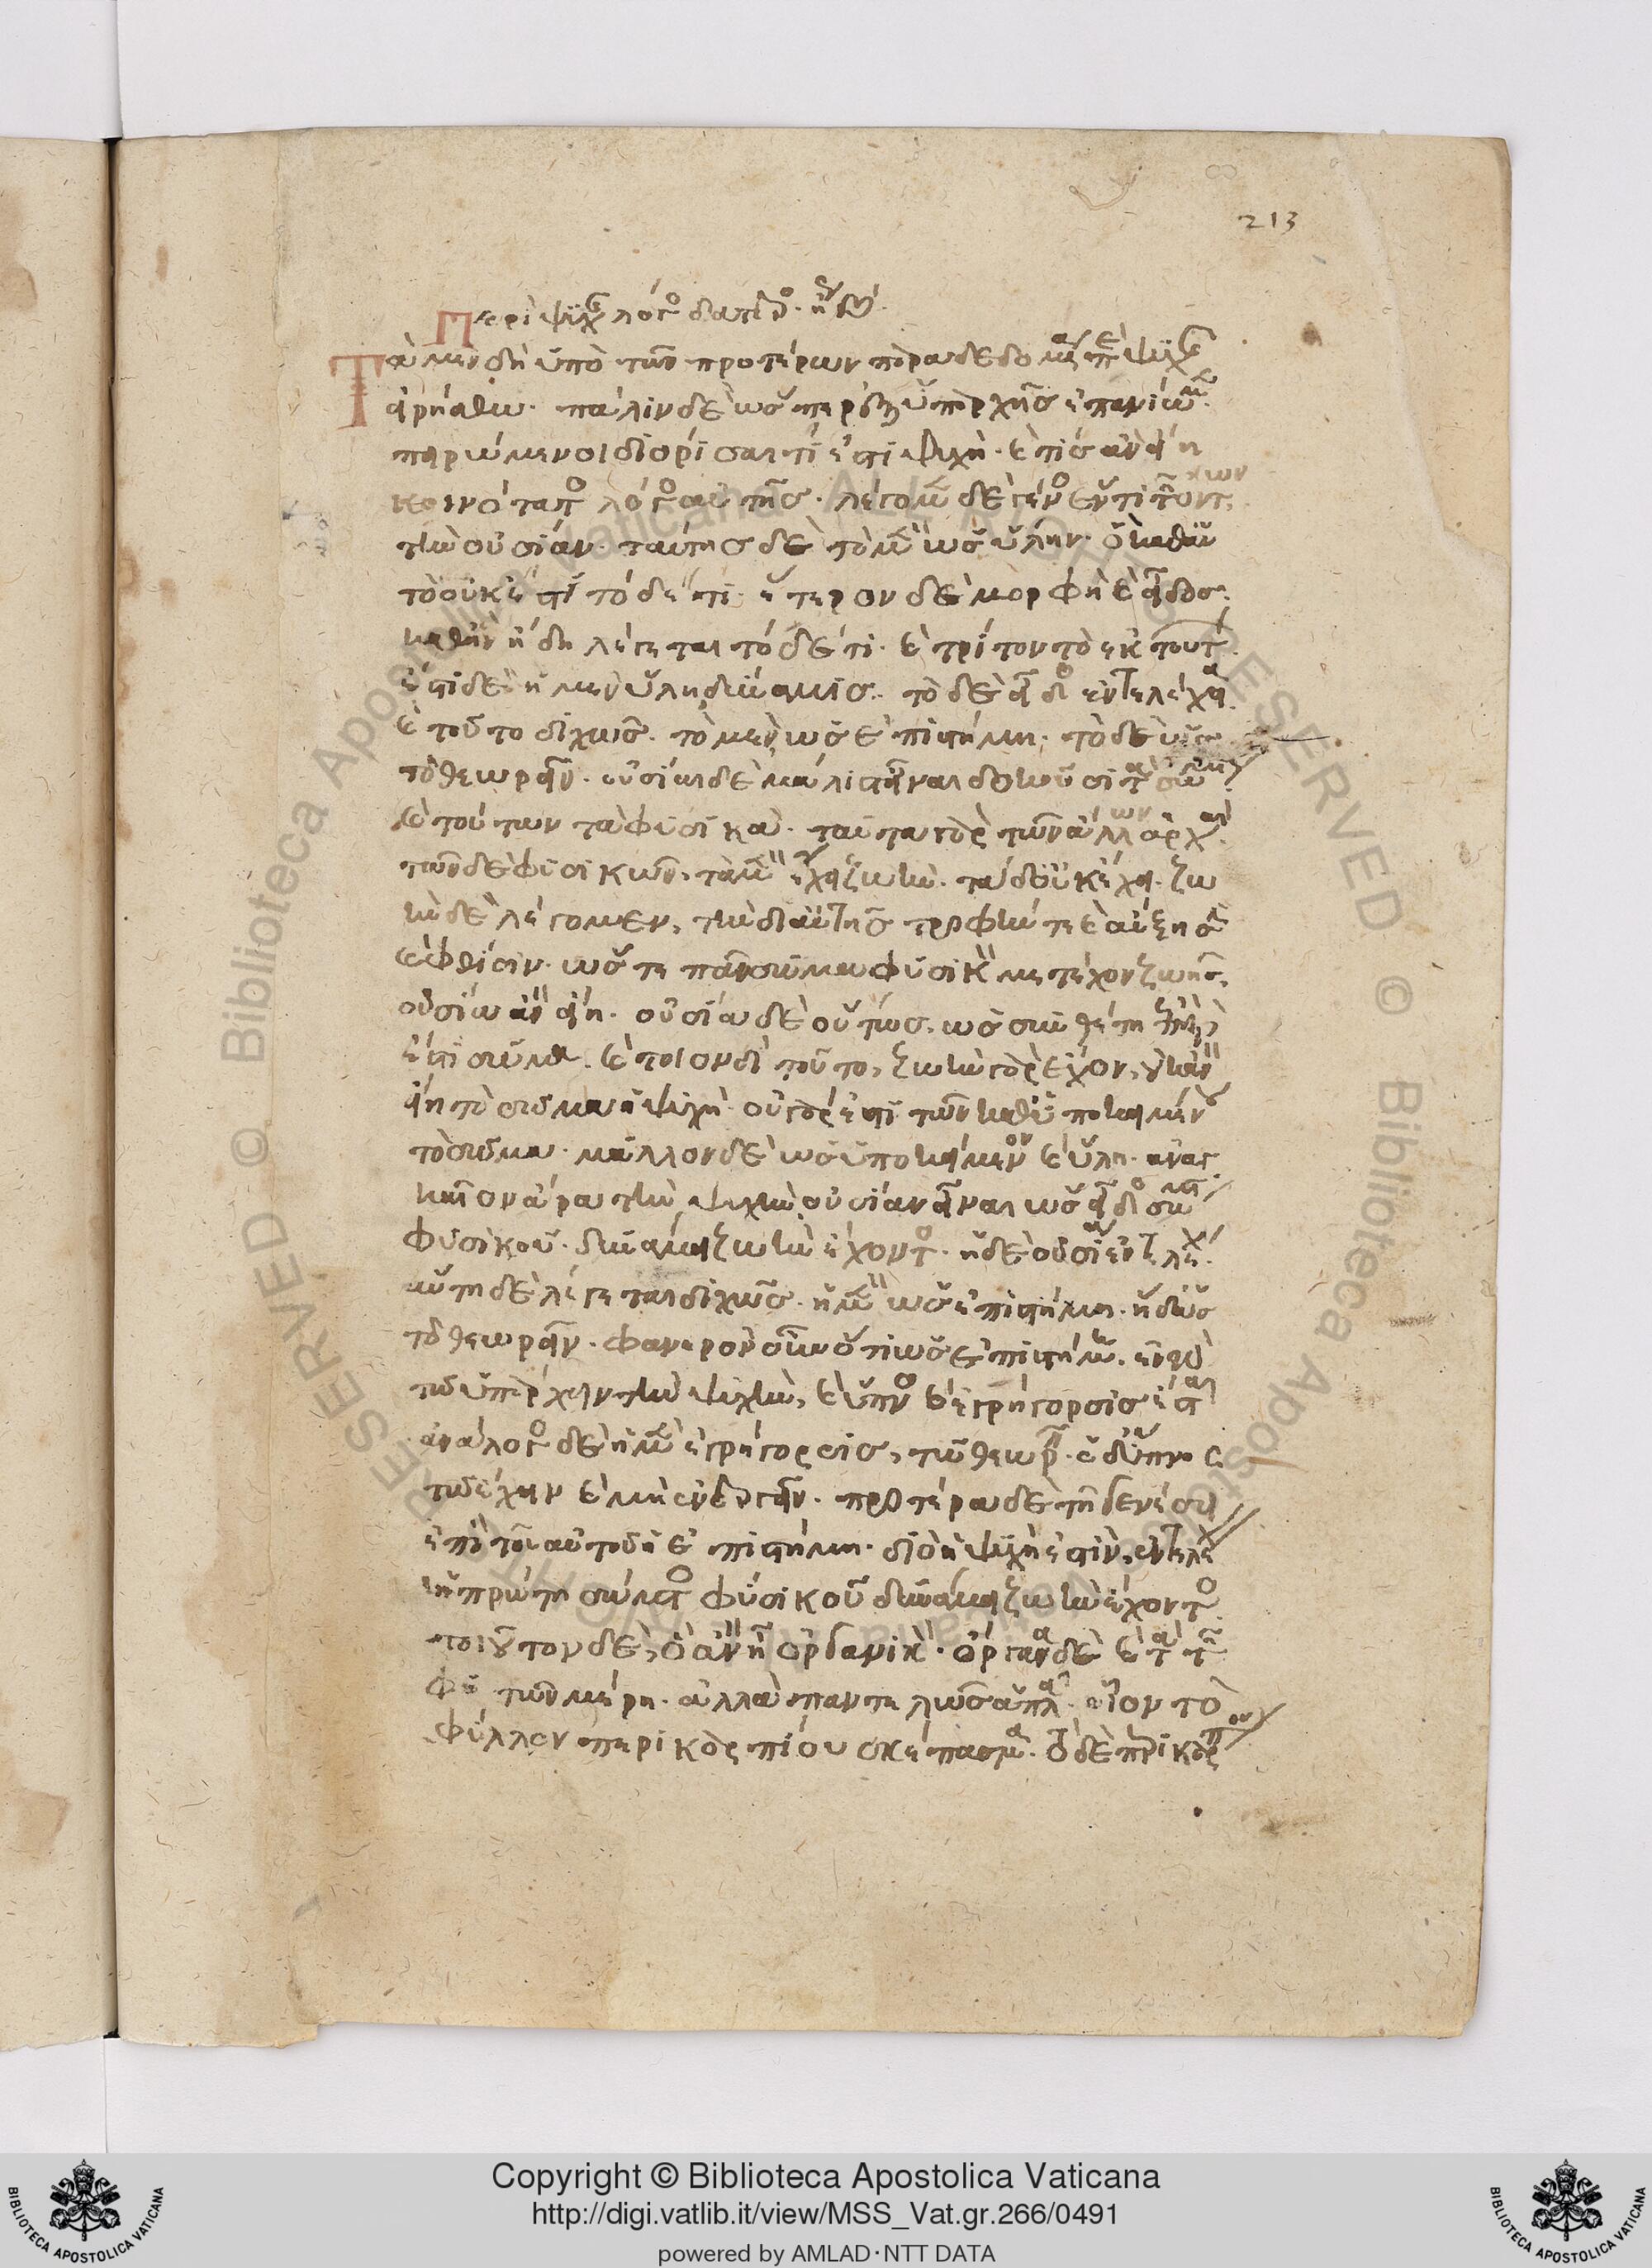 213
Περὶ ψυχῆς λόγος δεύτερος
Τὰ μὲν δὴ ὑπὸ τῶν προτέρων παραδεδομένα περὶ ψυχῆς
εἰρήσθω. πάλιν δὲ ὥσπερ ἐξ ὑπαρχῆς ἐπανίωμεν
πειρώμενοι διορίσαι τί ἐστι ψυχὴ. καὶ τίς ἂν εἴη
κοινότατος λόγος αὐτῆς. λέγομεν δὲ γένος ἕν τι τῶν ὄντων
τὴν οὐσίαν. ταύτης δὲ τὸ μὲν ὡς ὕλην. ὃ καθ' αὑ
τὸ οὐκ ἔστι τόδε τι. ἕτερον δὲ μορφὴ καὶ εἶδος.
καθ' ἣν ἤδη λέγεται τόδε τι. καὶ τρίτον τὸ ἐκ τούτων.
ἔστι δὲ ἡ μὲν ὕλη δύναμις. τὸ δὲ εἶδος ἐντελέχεια.
καὶ τοῦτο διχῶς. τὸ μὲν ὡς ἐπιστήμη. τὸ δὲ ὡς
τὸ θεωρεῖν. οὐσίαι δὲ μάλιστ' εἶναι δοκοῦσι τὰ σώματα
καὶ τούτων τὰ φυσικά. ταῦτα γὰρ τῶν ἄλλων ἀρχαί.
τῶν δὲ φυσικῶν, τὰ μὲν ἔχει ζωὴν. τὰ δ' οὐκ ἔχει. ζω
ὴν δὲ λέγομεν, τὴν δι' αὑτῆς τροφήν τε καὶ αὔξησιν
καὶ φθίσιν. ὥστε πᾶν σῶμα φυσικὸν μετέχον ζωῆς,
οὐσία ἂν εἴη. οὐσία δὲ οὕτως, ὡς συνθέτη. ἐπεὶ
ἐστι σῶμα. καὶ τοιονδὶ τοῦτο, ζωὴν γὰρ ἔχον, οὐκ ἂν
εἴη τὸ σῶμα ἡ ψυχή. οὐ γάρ ἐστι τῶν καθ' ὑποκειμένου
τὸ σῶμα. μᾶλλον δὲ ὡς ὑποκείμενον καὶ ὕλη. ἀναγ
καῖον ἄρα τὴν ψυχὴν οὐσίαν εἶναι ὡς εἶδος σώματος
φυσικοῦ. δυνάμει ζωὴν ἔχοντος. ἡ δὲ οὐσία ἐντελέχεια.
αὕτη δὲ λέγεται διχῶς. ἡ μὲν ὡς ἐπιστήμη. ἡ δ' ὡς
τὸ θεωρεῖν. φανερὸν οὖν ὅτι ὡς ἐπιστήμη. ἐν γὰρ
τῷ ὑπάρχειν τὴν ψυχὴν, καὶ ὕπνος καὶ ἐγρήγορσίς ἐστιν
ἀνάλογος δὲ ἡ μὲν ἐγρήγορσις, τῷ θεωρεῖν. ὁ δ' ὕπνος
τῷ ἔχειν καὶ μὴ ἐνεργεῖν. προτέρα δὲ τῇ γενέσει
ἐπὶ τοῦ αὐτοῦ ἡ ἐπιστήμη. διὸ ἡ ψυχή ἐστιν, ἐντελέχεια
ἡ πρώτη σώματος φυσικοῦ δυνάμει ζωὴν ἔχοντος.
τοιοῦτον δὲ, ὃ ἂν ᾖ ὀργανικόν. ὄργανα δὲ καὶ τὰ τῶν
φυτῶν μέρη. ἀλλὰ παντελῶς ἁπλᾶ. οἷον τὸ
φύλλον περικαρπίου σκέπασμα. τὸ δὲ περικάρπιον